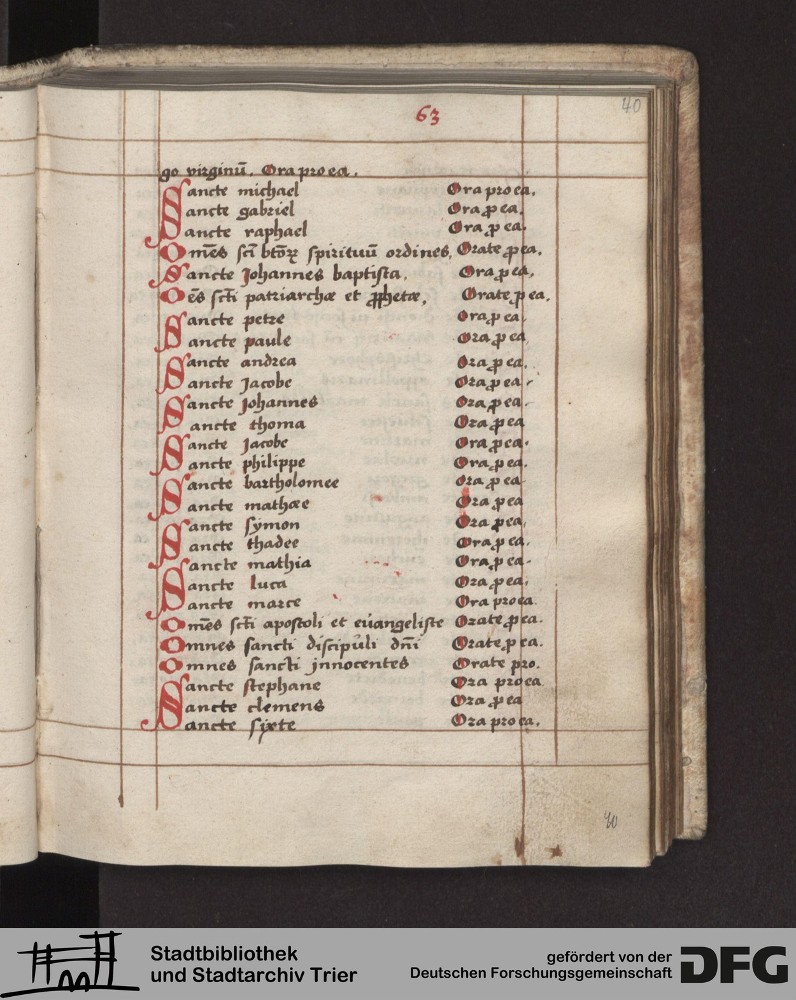 40
63
go virginū. Ora pro ea.
Sancte michael Ora pro ea.
Sancte gabriel Ora ꝓ ea.
Sancte raphael Ora ꝓ ea.
Om̄es sc̄i btōꝝ spirituū ordines, Orate ꝓ ea.
Sancte Johannes baptista. Ora ꝓ ea.
Oēs sc̄ti patriarchæ et ꝓphetæ, Orate ꝓ ea.
Sancte petre Ora ꝓ ea.
Sancte paule Ora ꝓ ea
Sancte andrea Ora ꝓ ea.
Sancte Jacobe Ora ꝓ ea.
Sancte Johannes Ora ꝓ ea.
Sancte thoma Ora ꝓ ea
Sancte Jacobe Ora ꝓ ea.
Sancte philippe Ora ꝓ ea.
Sancte bartholomee Ora ꝓ ea
Sancte mathæe Ora ꝓ ea
Sancte symon Ora ꝓ ea.
Sancte thadee Ora ꝓ ea.
Sancte mathia Ora ꝓ ea.
Sancte luca Ora ꝓ ea.
Sancte marce Ora pro ea.
Om̄es sc̄ti apostoli et euangeliste Orate ꝓ ea.
Omnes sancti discipuli dn̄i Orate ꝓ ea.
Omnes sancti jnnocentes Orate pro.
Sancte stephane Ora pro ea
Sancte clemens Ora ꝓ ea
Sancte sixte Ora pro ea.
40
Stadtbibliothek
und Stadtarchiv Trier
gefördert von der
Deutschen Forschungsgemeinschaft
DFG